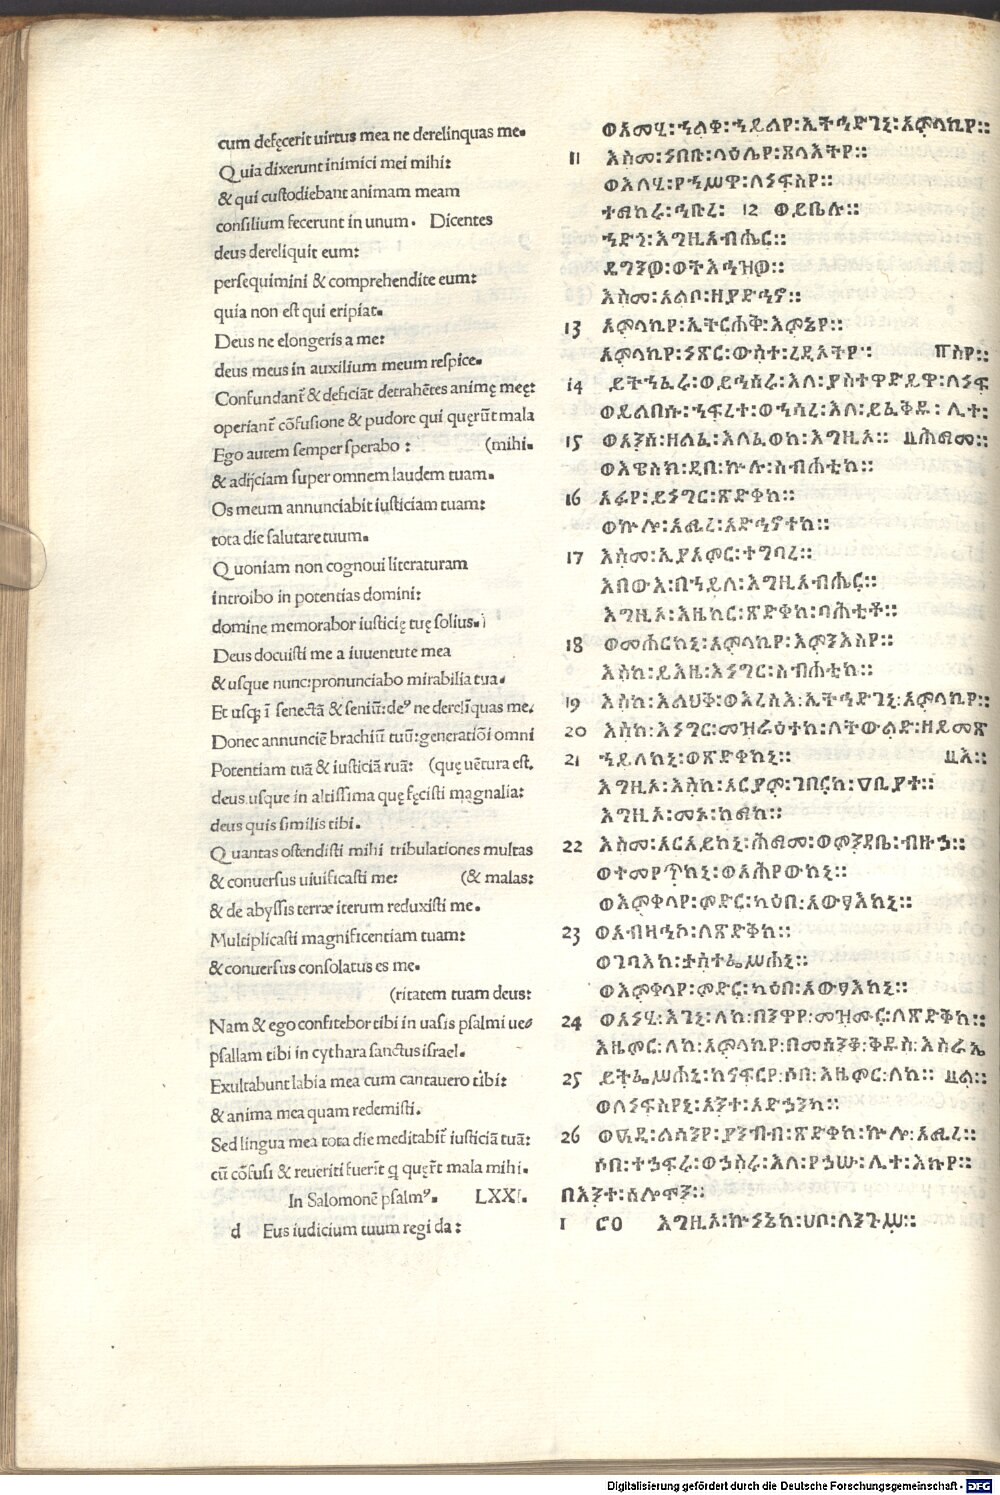 cum defęcerit uirtus mea ne derelinquas me.
Quia dixerunt inimici mei mihi:
& qui custodiebant animam meam
consilium fecerunt in unum. Dicentes
deus dereliquit eum:
persequimini & comprehendite eum:
quia non est qui eripiat.
Deus ne elongeris a me:
deus meus in auxilium meum respice.
Confundant᷑ & deficiāt detrahētes animę meę:
operiant᷑ cōfusione & pudore qui quęrūt mala
Ego autem semper sperabo: (mihi.
& adijciam super omnem laudem tuam.
Os meum annunciabit iusticiam tuam:
tota die salutare tuum.
Quoniam non cognoui literaturam
introibo in potentias domini:
domine memorabor iusticię tuę solius.
Deus docuisti me a iuuentute mea
& usque nunc:pronunciabo mirabilia tua.
Et usqꝫ ī senectā & seniū:deꝰ ne derelīquas me.
Donec annunciē brachiū tuū:generatiōi omni
Potentiam tuā & iusticiā ruā: (quę uētura est.
deus.usque in altissima quę fęcisti magnalia:
deus quis similis tibi.
Quantas ostendisti mihi tribulationes multas
& conuersus uiuificasti me: (& malas:
& de abyssis terræ iterum reduxisti me.
Multiplicasti magnificentiam tuam:
& conuersus consolatus es me.
(ritatem tuam deus:
Nam & ego confitebor tibi in uasis psalmi ue
psallam tibi in cythara sanctus israel.
Exultabunt labia mea cum cantauero tibi:
& anima mea quam redemisti.
Sed lingua mea tota die meditabit᷑ iusticiā tuā:
cū cōfusi & reueriti fuerīt q quęrt᷑ mala mihi.
In Salomonē psalmꝰ. LXXI.
d Eus iudicium tuum regi da:
ወእመሂ፡ኀልቀ፡ኀይልየ፡ኢትኀድገኒ፡አምላኪየ።
11 እስመ፡ነበቡ፡ላዕሌየ፡ጸላእትየ።
ወእለሂ፡የኀሥዋ፡ለነፍስየ።
ተማከሩ፡ኀቡረ፡ 12 ወይቤሉ።
ኀደጎ፡እግዚአብሔር።
ዴግንዎ፡ወትእኅዝዎ።
እስመ፡አልቦ፡ዘያድኅኖ።
13 አምላኪየ፡ኢትርሐቅ፡እምኔየ።
አምላኪየ፡ነጽር፡ውስተ፡ረዲኦትየ። ፍስየ።
14 ይትኀፈሩ፡ወይኀሰሩ፡እለ፡ያስተዋድይዋ፡ለነፍ
ወይልበሱ፡ኀፍረተ፡ወኀሳረ፡እለ፡ይፈቅዱ፡ሊተ፡
15 ወአንሰ፡ዘልፈ፡እሴፈወከ፡እግዚኦ። ሕማመ።
ወእዌስክ፡ዲበ፡ኵሉ፡ስብሐቲከ።
16 አፉየ፡ይነግር፡ጽድቀከ።
ወኵሎ፡አሚረ፡አድኅኖተከ።
17 እስመ፡ኢያአምር፡ተግባረ።
እበውእ፡በኀይለ፡እግዚአብሔር።
እግዚኦ፡እዜከር፡ጽድቀከ፡ባሕቲቶ።
18 ወመሐርከኒ፡አምላኪየ፡እምንእስየ።
እስከ፡ይእዜ፡እነግር፡ስብሐቲከ።
19 እስከ፡እልህቅ፡ወእረስእ፡ኢትኀድገኒ፡አምላኪየ።
20 እስከ፡እነግር፡መዝራዕተከ፡ለትውልድ፡ዘይመጽ
21 ኀይለከኒ፡ወጽድቀከኒ። እ።
እግዚኦ፡እስከ፡አርያም፡ገበርከ፡ዐቢያተ።
እግዚኦ፡መኑ፡ከማከ።
22 እስመ፡አርአይከኒ፡ሕማመ፡ወምንዳቤ፡ብዙኃ።
ወተመየጥከኒ፡ወአሕየውከኒ።
ወእምቀላየ፡ምድር፡ካዕበ፡አውፃእከኒ።
23 ወአብዘኅኮ፡ለጽድቅከ።
ወገባእከ፡ታስተፌሥሐኒ።
ወእምቀላየ፡ምድር፡ካዕበ፡አውፃእከኒ።
24 ወአነሂ፡እገኒ፡ለከ፡በንዋየ፡መዝሙር፡ለጽድቅከ።
እዜምር፡ለከ፡አምላኪየ፡በመሰንቆ፡ቅዱስ፡እስራኤ
25 ይትፌሥሐኒ፡ከናፍርየ፡ሶበ፡እዜምር፡ለከ። ል።
ወለነፍስየኒ፡እንተ፡አድኀንከ።
26 ወዓዲ፡ልሳንየ፡ያንብብ፡ጽድቀከ፡ኵሎ፡አሚረ።
ሶበ፡ተኀፍሩ፡ወኀስሩ፡እለ፡የኀሡ፡ሊተ፡እኩየ።
በእንተ፡ሰሎሞን።
1 ፸፩ እግዚኦ፡ኵነኔከ፡ሀቦ፡ለንጉሥ።
Digitalisierung gefördert durch die Deutsche Forschungsgemeinschaft - DFG